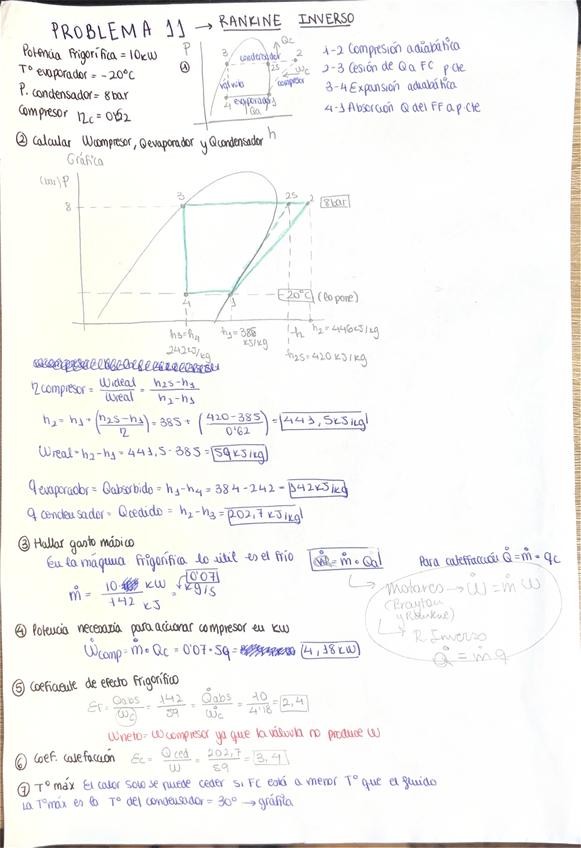 PROBLEMA 11 → RANKINE INVERSO
Potencia frigorífica = 10KW
Tº evaporador = -20ºC
P. condensador = 8bar
Compresor ηc = 0'62
①
P
3 condensador 2S 2
Qc
Wc
válvula
compresor
4 evaporador 1
Qa
h
1-2 Compresión adiabática
2-3 Cesión de Qa FC p cte
3-4 Expansión adiabática
4-1 Absorción Q del FF a p cte
② Calcular Wcompresor, Qevaporador y Qcondensador
Gráfica
(bar) P
8
3 2S 2 8bar
4 1 -20ºC (lo pone)
h3=h4
242KJ/kg
h1=385
KJ/kg
h
h2=446KJ/kg
h2S=420KJ/kg
η compresor = Wideal/Wreal = h2S-h1/h2-h1
h2 = h1 + (h2S-h1/η) = 385 + (420-385/0'62) = 441,5KJ/kg
Wreal = h2-h1 = 441,5-385 = 59KJ/kg
q evaporador = Qabsorbido = h1-h4 = 384-242 = 142KJ/kg
q condensador = Qcedido = h2-h3 = 202,7KJ/kg
③ Hallar gasto másico
En la máquina frigorífica lo útil es el frío
= ṁ · Qa
Para calefacción Q̇ = ṁ · qc
ṁ = 10 KW/142 KJ = 0'07 kg/s
Motores → Ẇ = ṁ W
(Brayton
y Rankine)
R. Inverso
Q̇ = ṁ q
④ Potencia necesaria para accionar compresor en KW
Ẇcomp = ṁ · Qc = 0'07 · 59 = 4,18KW
⑤ Coeficiente de efecto frigorífico
EF = Qabs/Wc = 142/59 = Q̇abs/Ẇc = 10/4'18 = 2,4
Wneto = W compresor ya que la válvula no produce W
⑥ Coef. calefacción Ec = Qced/W = 202,7/59 = 3,4
⑦ Tº máx El calor solo se puede ceder si FC está a menor Tº que el fluido
La Tº máx es la Tº del condensador = 30º → gráfica